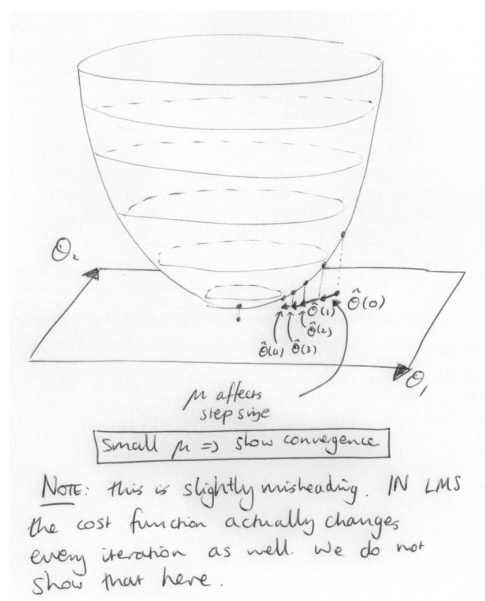 θ₂
θ̂(0)
θ̂(1)
θ̂(2)
θ̂(4) θ̂(3)
θ₁
μ affects
step size
Small μ => slow convergence
NOTE: this is slightly misheading. IN LMS
the cost function actually changes
every iteration as well. We do not
show that here.